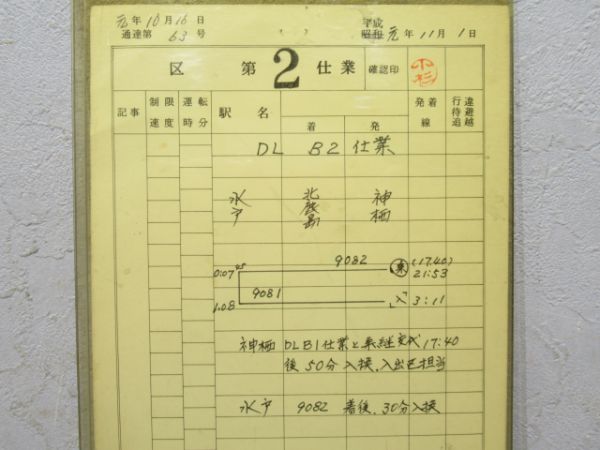 元年10月16日
通達第 63 号
平成
昭和 元年11月1日
区 第 2 仕業 確認印 小杉
記事 制限速度 運転時分 駅名 着 発 発着線 行違 待避 追越
DL B2 仕業
水戸 北鹿島 神栖
9082 (17.40)
0:07 45 乗 21:53
9081
1.08 入 3:11
神栖 DLB1仕業と乗継交代 17:40
後 50分入換、入出区担当
水戸 9082 着後、30分入換